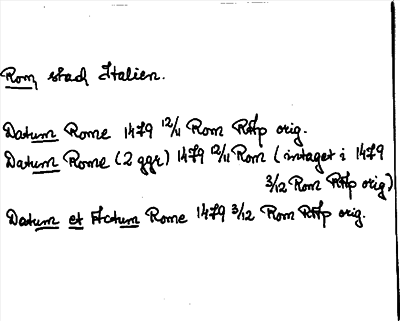 Rom, stad Italien.
Datum Rome 1479 12/11 Rom RAp orig.
Datum Rome (2 ggr) 1479 12/11 Rom (intaget i 1479
3/12 Rom RAp orig)
Datum et Actum Rome 1479 3/12 Rom RAp orig.